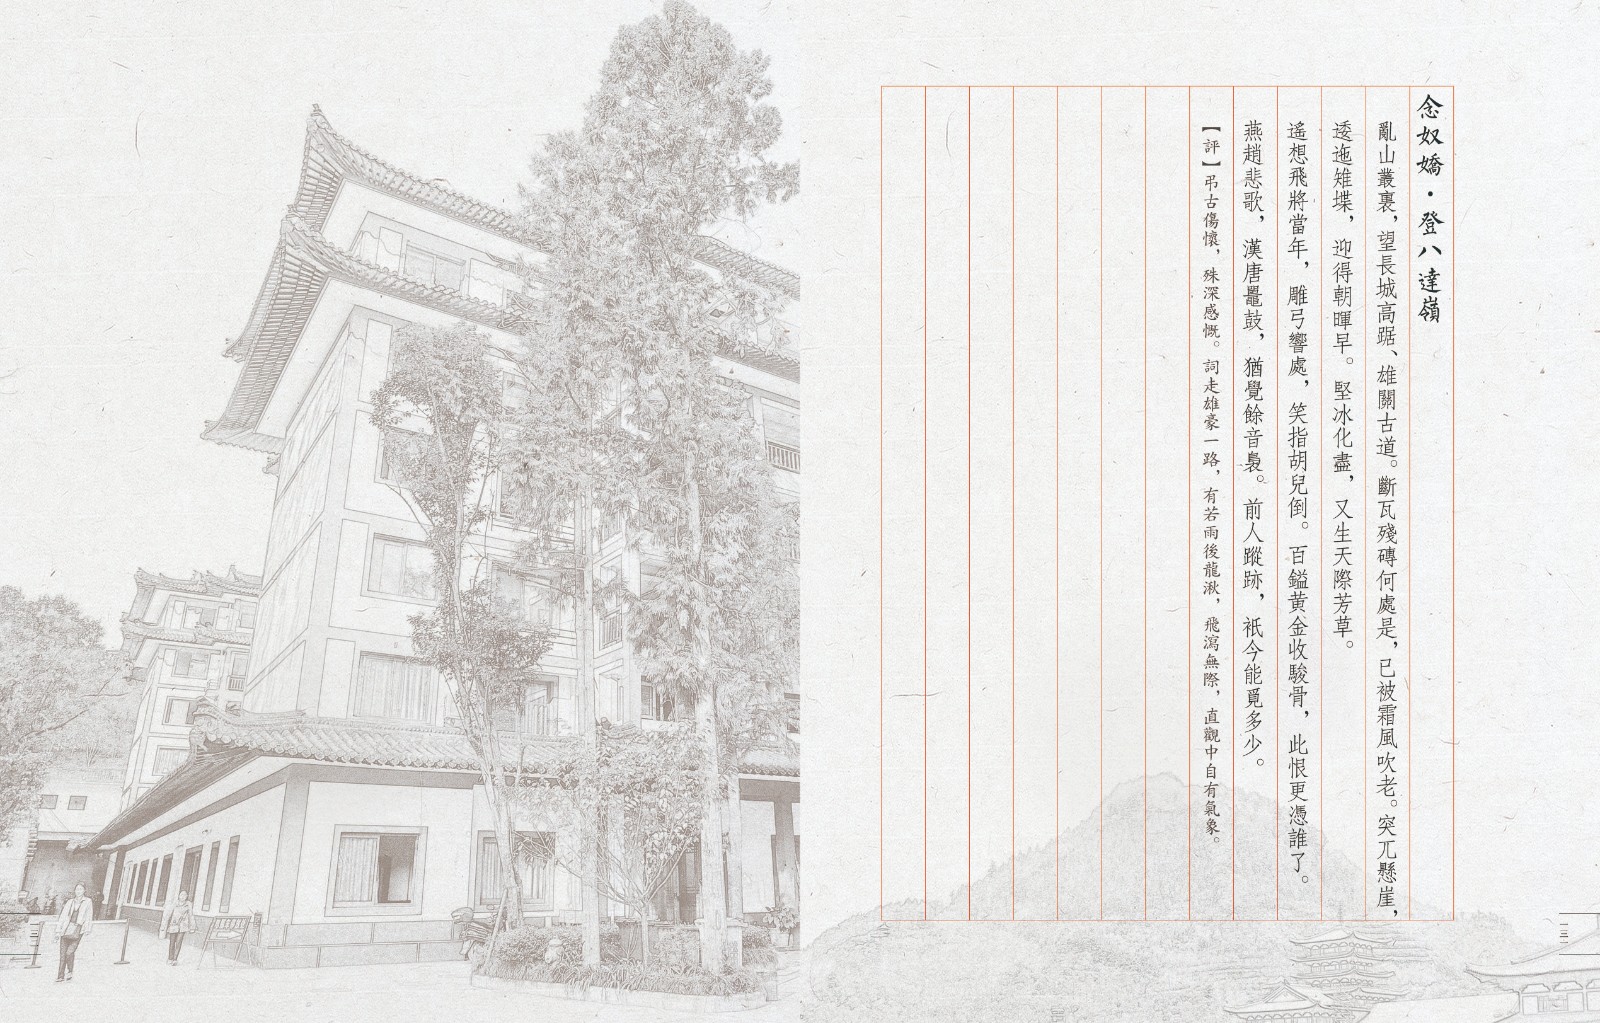 念奴嬌·登八達嶺
亂山叢裏，望長城高踞、雄關古道。斷瓦殘磚何處是，已被霜風吹老。突兀懸崖，
逶迤雉堞，迎得朝暉早。堅冰化盡，又生天際芳草。
遙想飛將當年，雕弓響處，笑指胡兒倒。百鎰黄金收駿骨，此恨更憑誰了。
燕趙悲歌，漢唐鼉鼓，猶覺餘音裊。前人蹤跡，衹今能覓多少。
【評】弔古傷懷，殊深感慨。詞走雄豪一路，有若雨後龍湫，飛瀉無際，直觀中自有氣象。
一三一